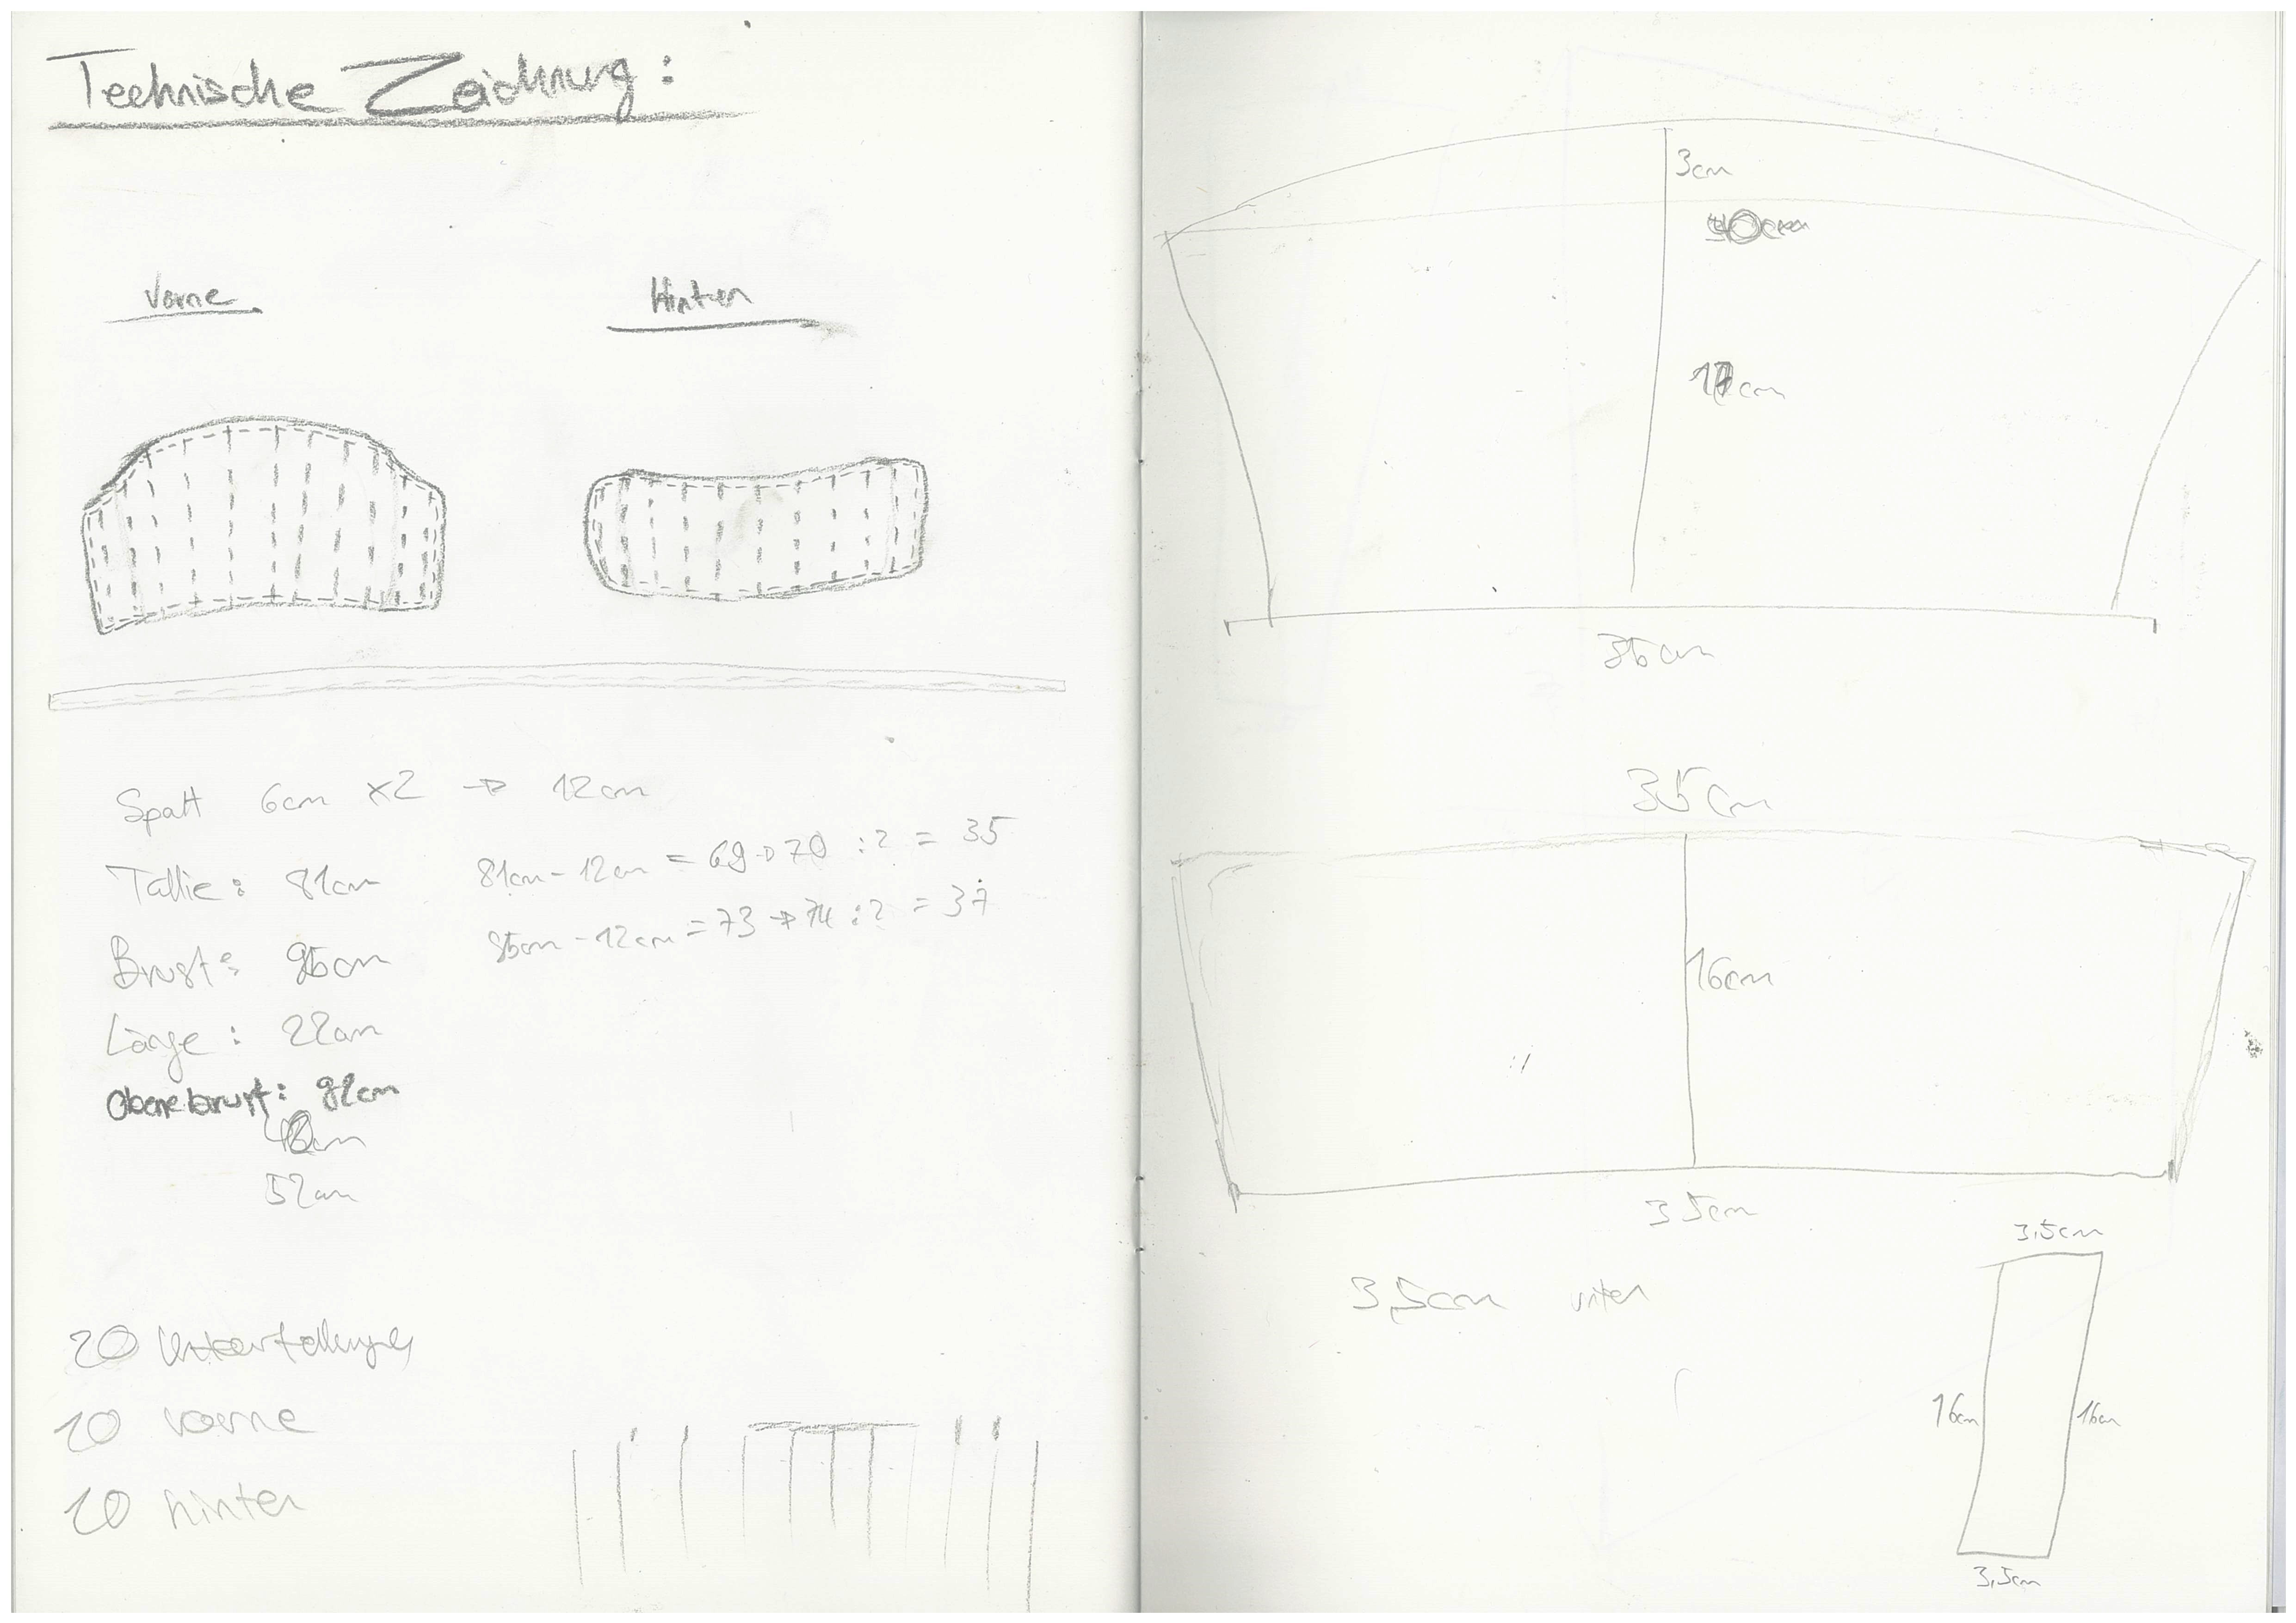 Technische Zeichnung:
Vorne
Hinten
Spalt 6cm x2 → 12cm
Tallie: 81cm 81cm - 12cm = 69 → 70 : 2 = 35
Brust: 85cm - 12cm = 73 → 74 : 2 = 37
Länge: 22cm
Obere brust: 82cm
52cm
20 Unterteilungen
10 vorne
10 hinten
3cm
17cm
35cm
35cm
16cm
35cm
3,5cm unten
3,5cm
16cm 16cm
3,5cm